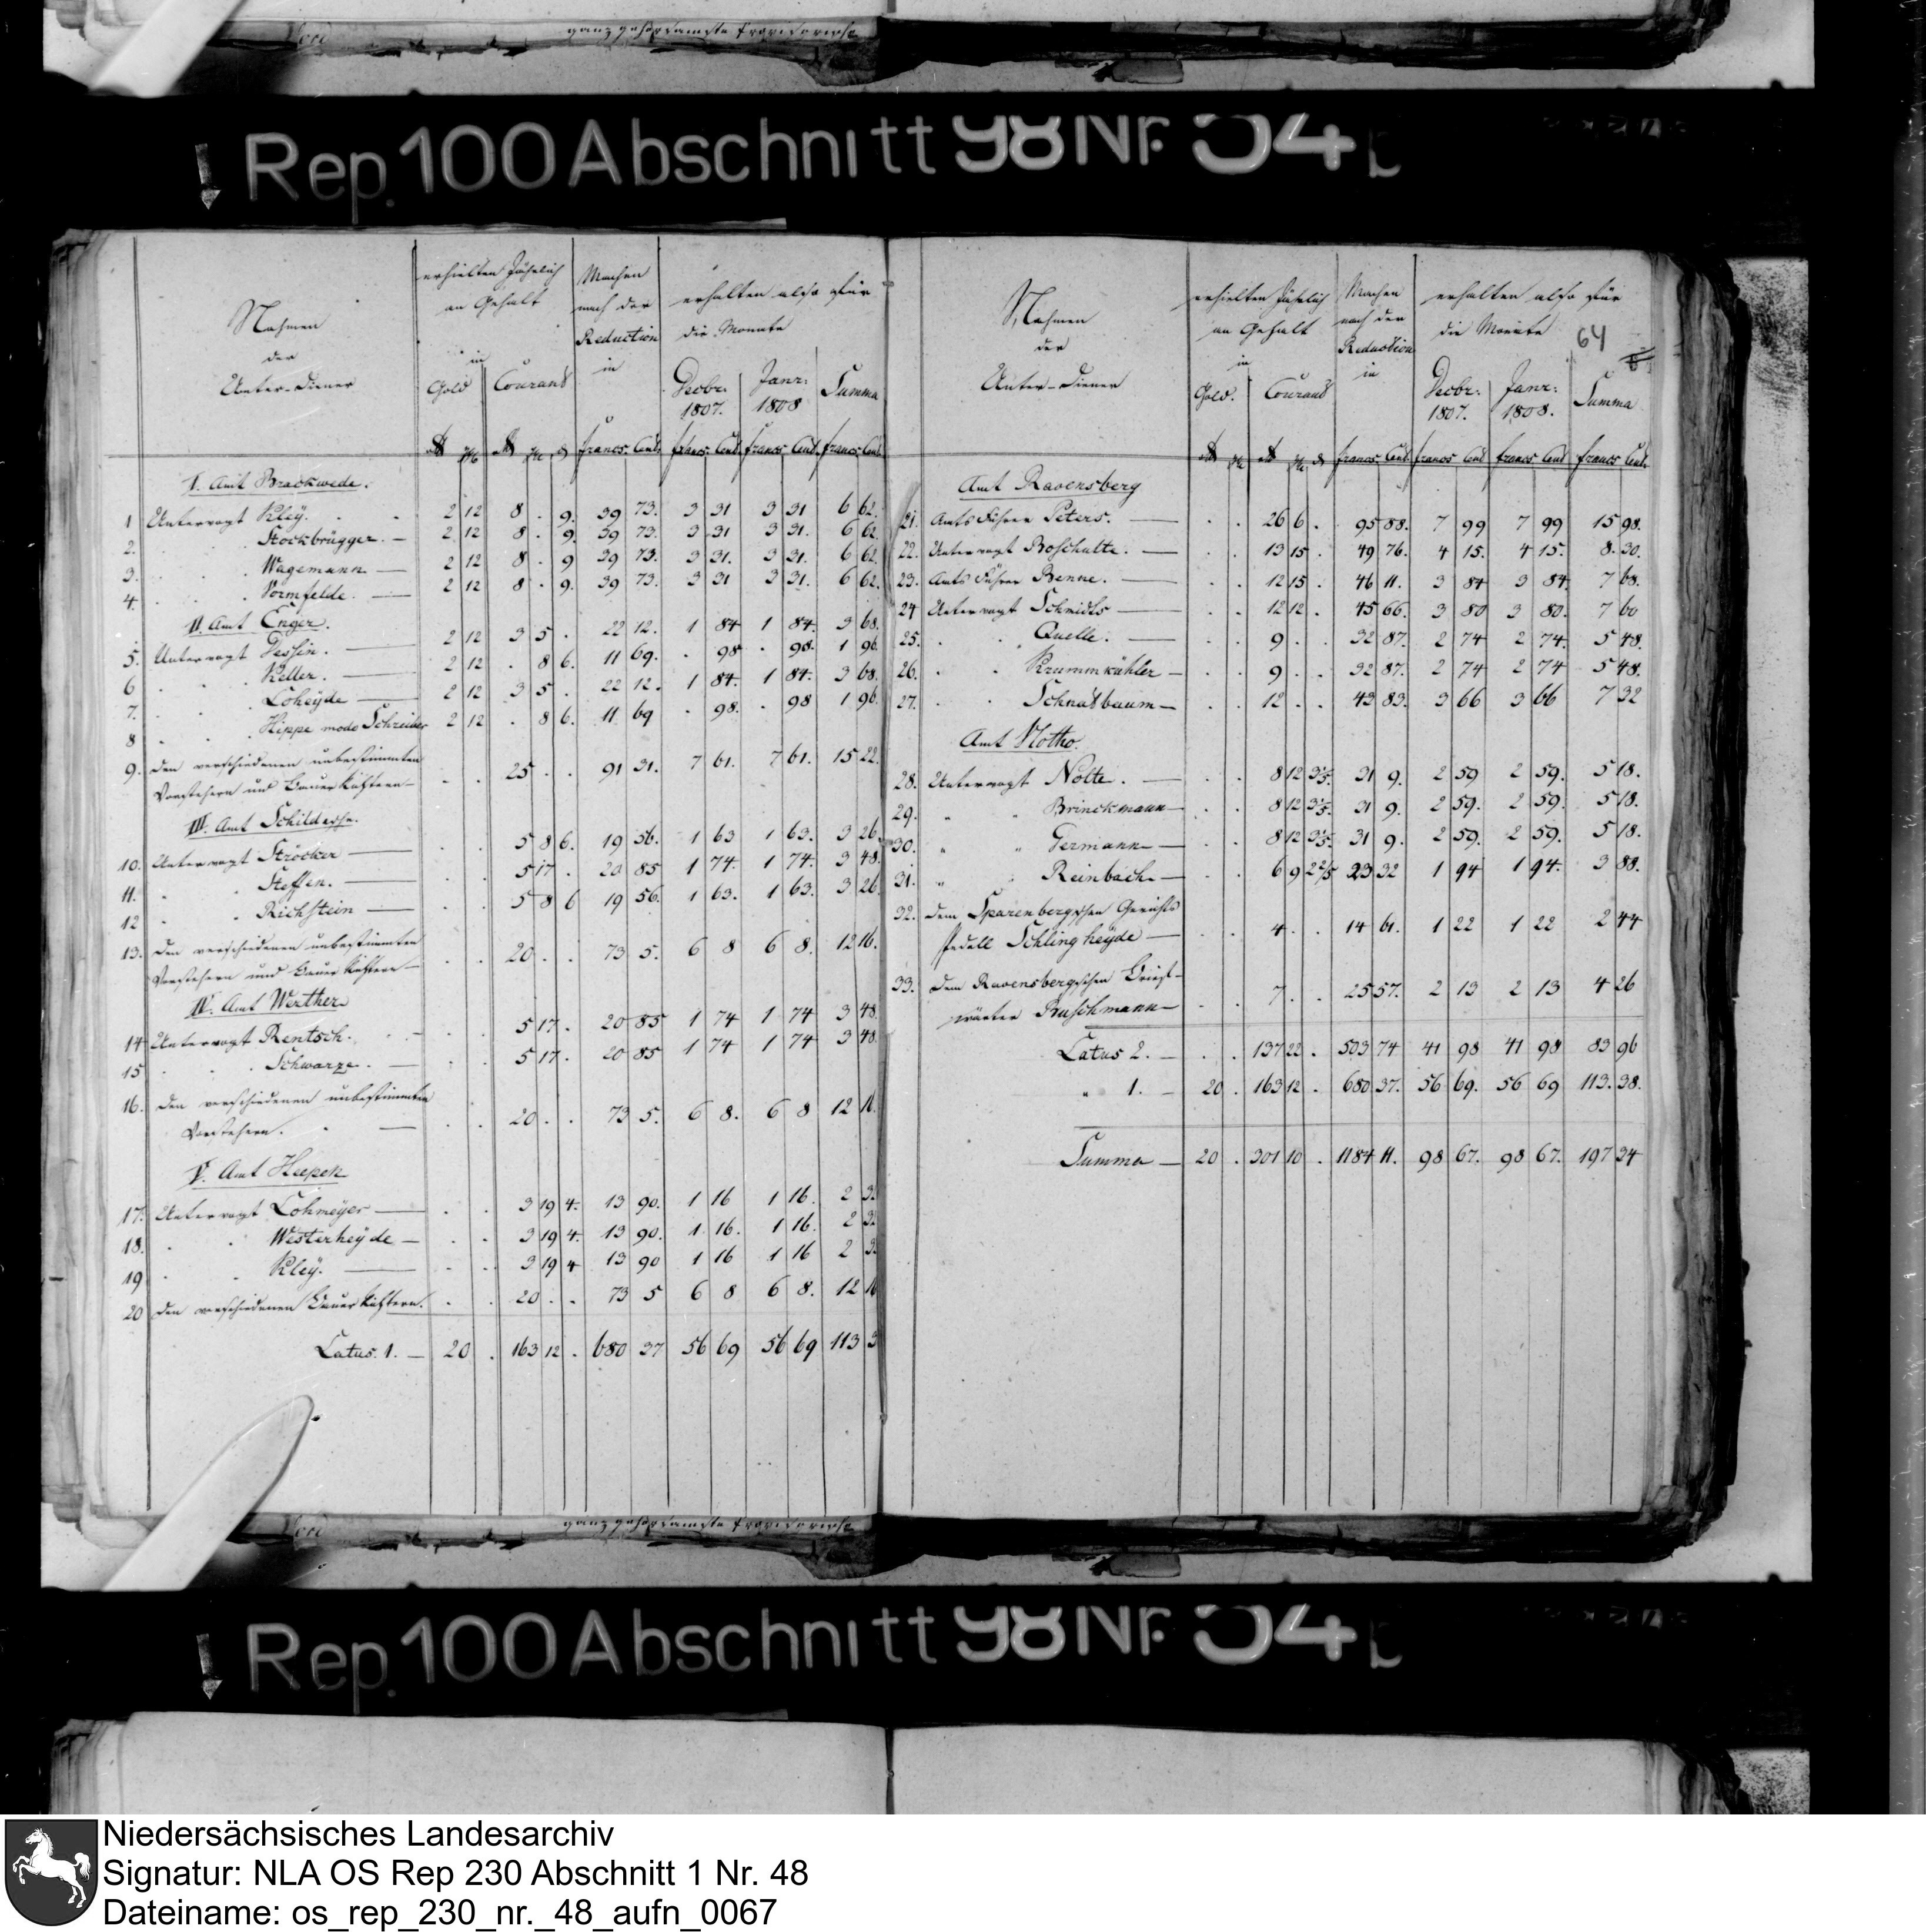 ganz gehorsamste Provisorische
Rep. 100 Abschnitt 98 Nr. 54
Nahmen
der
Unter-Diener
erhielten Jährlich
an Gehalt
in
Gold Courand
Machen
nach der
Reduction
in
erhalten also für
die Monate
Decbr. 1807. Janr. 1808 Summa
francs. Cent. francs. Cent. francs. Cent. francs. Cent.
I. Amt Brackwede.
1 Untervogt Kleÿ. 2 12 8 . 9. 39 73. 3 31 3 31 6 62.
2. Stockbrügger. — 2 12 8 . 9. 39 73. 3 31 3 31. 6 62.
3. Wagemann — 2 12 8 . 9 39 73. 3 31. 3 31. 6 62.
4. Vormfelde. — 2 12 8 . 9. 39 73. 3 31 3 31. 6 62.
II. Amt Enger.
5. Untervogt Dessin. — 2 12 3 5 . 22 12. 1 84 1 84. 3 68.
6 Keller. — 2 12 . 8 6. 11 69. . 98 . 98. 1 96.
7. Loheÿde — 2 12 3 5 . 22 12. 1 84. 1 84. 3 68.
8 Hippe modo Schreiber 2 12 . 8 6. 11 69 . 98. . 98 1 96.
9. den verschiedenen unbestimmten
Vorstehern und Bauerküstern — . . 25 . . 91 31. 7 61. 7 61. 15 22.
III. Amt Schildesche.
10. Untervogt Ströcker — . . 5 8 6. 19 56. 1 63 1 63. 3 26.
11. Steffen. — . . 5 17 . 20 85 1 74. 1 74. 3 48.
12 Richstein — . . 5 8 6 19 56. 1 63. 1 63. 3 26
13. den verschiedenen unbestimmten
Vorstehern und Bauerküstern — . . 20 . . 73 5. 6 8 6 8. 12 16.
IV. Amt Werther
14 Untervogt Rentsch. . . 5 17 . 20 85 1 74 1 74 3 48.
15 Schwarze. — . . 5 17 . 20 85 1 74 1 74 3 48.
16. den verschiedenen unbestimmten
Vorstehern. — . . 20 . . 73 5. 6 8. 6 8 12
V. Amt Heepen
17. Untervogt Lohmeÿer — . . 3 19 4. 13 90. 1 16 1 16. 2
18. Westerheÿde — . . 3 19 4. 13 90. 1 16. 1 16. 2
19 Kleÿ. — . . 3 19 4 13 90 1 16 1 16 2
20 den verschiedenen Bauerküstern. . . 20 . . 73 5 6 8 6 8. 12
Latus. 1. — 20 . 163 12 . 680 37 56 69 56 69 113
Nahmen
der
Unter-Diener
erhielten Jährlich
an Gehalt
in
Gold. Courand
Machen
nach der
Reduction
in
erhalten also für
die Monate
64
Decbr. 1807. Janr. 1808. Summa
francs Cent. francs Cent francs Cent francs Cent.
Amt Ravensberg
21. Amts Führer Peters. — . . 26 6 . 95 88. 7 99 7 99 15 98.
22. Untervogt Boschulte. — . . 13 15 . 49 76. 4 15. 4 15. 8. 30.
23. Amts Führer Benne. — . . 12 15 . 46 11. 3 84 3 84. 7 68.
24 Untervogt Schmidts — . . 12 12 . 45 66. 3 80 3 80. 7 60
25. Quelle. — . . 9 . . 32 87. 2 74 2 74. 5 48.
26. Krummkühler — . . 9 . . 32 87. 2 74 2 74 5 48.
27. Schnatbaum — . . 12 . . 43 83. 3 66 3 66 7 32
Amt Vlotho.
28. Untervogt Nolte. — . . 8 12 3 1/5. 31 9. 2 59 2 59. 5 18.
29. Brinckmann — . . 8 12 3 1/5. 31 9. 2 59. 2 59. 5 18.
30. Germann — . . 8 12 3 1/5. 31 9. 2 59. 2 59. 5 18.
31. Reinbach — 6 9 2 2/5 23 32 1 94 1 94. 3 88.
32. dem Sparenbergschen Gerichts
Pedell Schlingheÿde — . . 4 . . 14 61. 1 22 1 22 2 44
33. dem Ravensbergschen
wärter Buschmann — . . 7 . . 25 57. 2 13 2 13 4 26
Latus 2. — . . 137 22 . 503 74 41 98 41 98 83 96
" 1. — 20 . 163 12 . 680 37. 56 69. 56 69 113. 38.
Summa — 20 . 301 10 . 1184 11. 98 67. 98 67. 197 34
ganz gehorsamste Provisorische
Rep. 100 Abschnitt 98 Nr. 54
Niedersächsisches Landesarchiv
Signatur: NLA OS Rep 230 Abschnitt 1 Nr. 48
Dateiname: os_rep_230_nr._48_aufn_0067